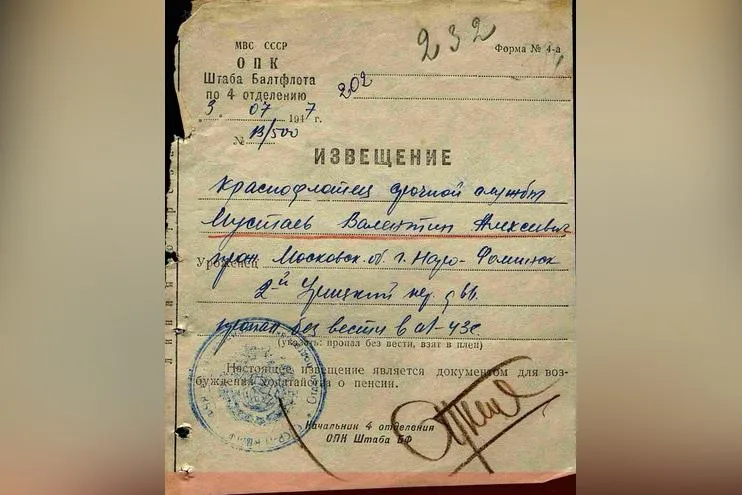 232
МВС СССР
ОПК
Штаба Балтфлота
по 4 отделению
Форма № 4-а
202
"3" 07 1947 г.
№ 13/500
ИЗВЕЩЕНИЕ
Краснофлотец срочной службы
Мустаев Валентин Алексеевич
Уроженец Московск. об. г. Наро-Фоминск
2й Урицкий пер. д
пропал без вести в 43г
(указать: пропал без вести, взят в плен)
Настоящее извещение является документом для воз-
буждения ходатайства о пенсии.
Начальник 4 отделения
ОПК Штаба БФ